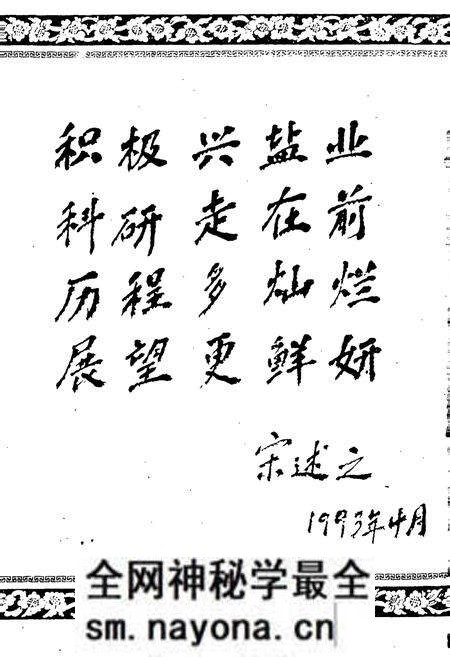 积极兴盐业
科研走在前
历程多灿烂
展望更鲜妍
宋述之
1993年4月
全网神秘学最全
sm.nayona.cn